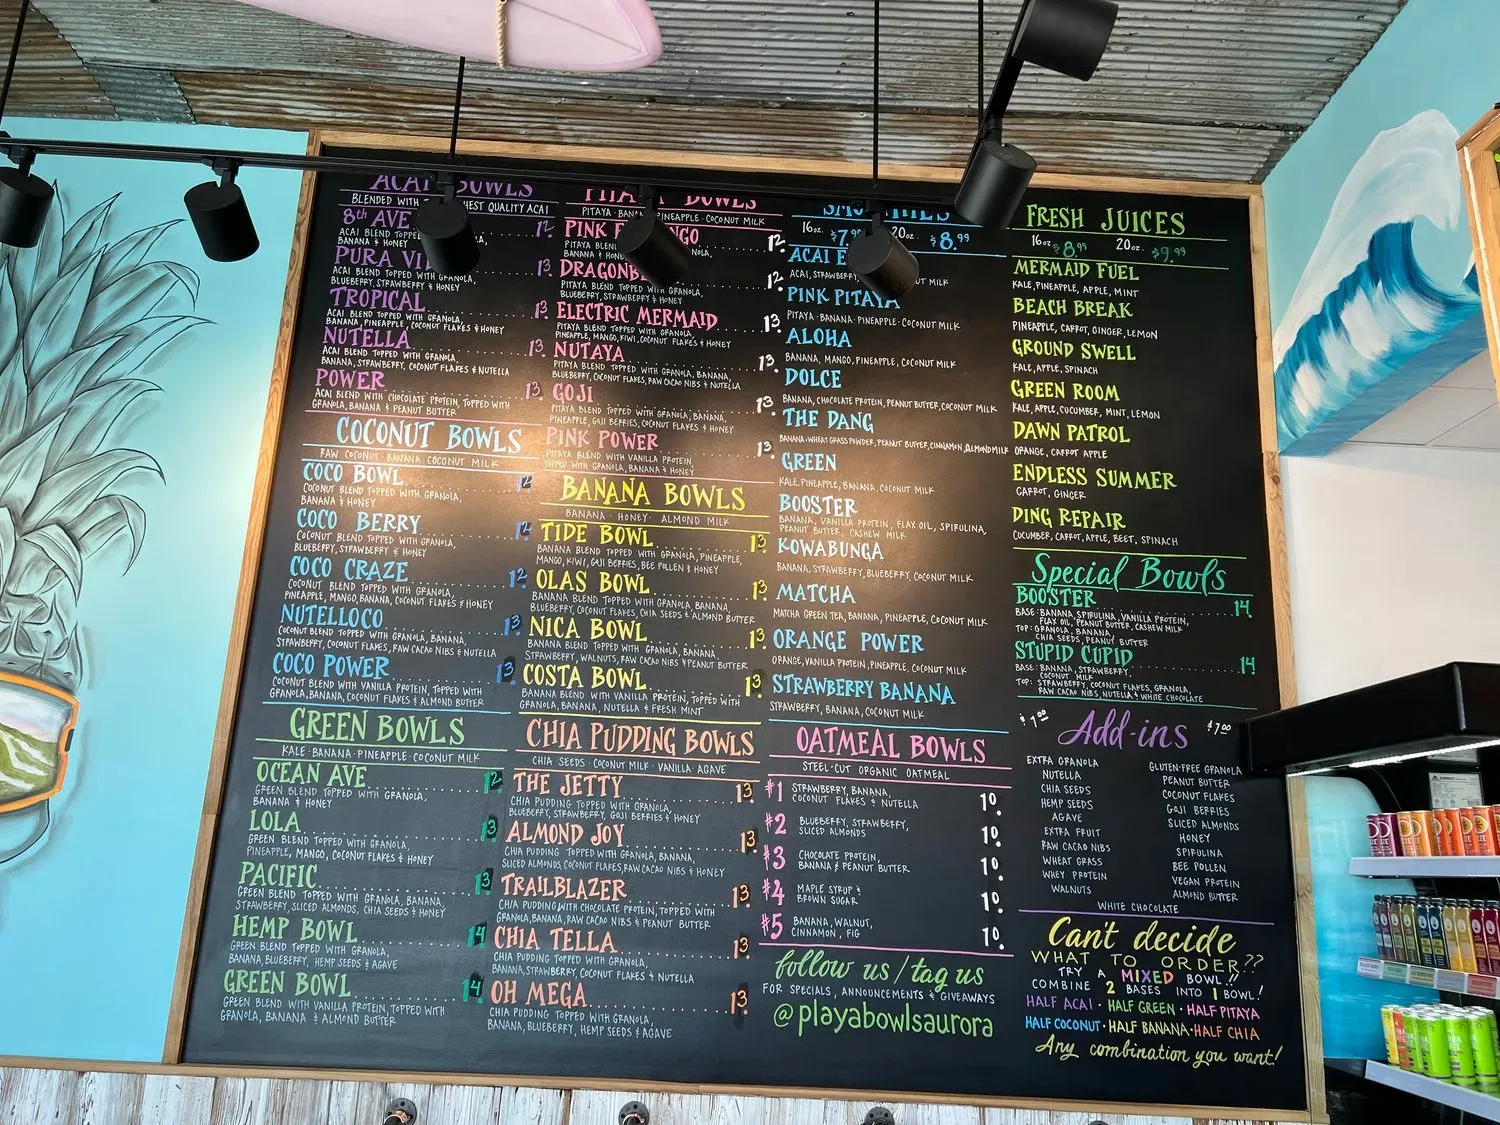 ACAI BOWLS
BLENDED WITH HIGHEST QUALITY ACAI
8th AVE 12.
ACAI BLEND TOPPED
BANANA & HONEY
PURA VI 13.
ACAI BLEND TOPPED WITH GRANOLA,
BLUEBERRY, STRAWBERRY & HONEY
TROPICAL 13.
ACAI BLEND TOPPED WITH GRANOLA,
BANANA, PINEAPPLE, COCONUT FLAKES & HONEY
NUTELLA 13.
ACAI BLEND TOPPED WITH GRANOLA,
BANANA, STRAWBERRY, COCONUT FLAKES & NUTELLA
POWER 13.
ACAI BLEND WITH CHOCOLATE PROTEIN, TOPPED WITH
GRANOLA, BANANA & PEANUT BUTTER
COCONUT BOWLS
RAW COCONUT · BANANA · COCONUT MILK
COCO BOWL 12
COCONUT BLEND TOPPED WITH GRANOLA,
BANANA & HONEY
COCO BERRY 12
COCONUT BLEND TOPPED WITH GRANOLA,
BLUEBERRY, STRAWBERRY & HONEY
COCO CRAZE 12.
COCONUT BLEND TOPPED WITH GRANOLA,
PINEAPPLE, MANGO, BANANA, COCONUT FLAKES & HONEY
NUTELLOCO 13
COCONUT BLEND TOPPED WITH GRANOLA, BANANA,
STRAWBERRY, COCONUT FLAKES, RAW CACAO NIBS & NUTELLA
COCO POWER 13
COCONUT BLEND WITH VANILLA PROTEIN, TOPPED WITH
GRANOLA, BANANA, COCONUT FLAKES & ALMOND BUTTER
GREEN BOWLS
KALE · BANANA · PINEAPPLE · COCONUT MILK
OCEAN AVE 12
GREEN BLEND TOPPED WITH GRANOLA,
BANANA & HONEY
LOLA 13
GREEN BLEND TOPPED WITH GRANOLA,
PINEAPPLE, MANGO, COCONUT FLAKES & HONEY
PACIFIC 13
GREEN BLEND TOPPED WITH GRANOLA, BANANA,
STRAWBERRY, SLICED ALMONDS, CHIA SEEDS & HONEY
HEMP BOWL 14
GREEN BLEND TOPPED WITH GRANOLA,
BANANA, BLUEBERRY, HEMP SEEDS & AGAVE
GREEN BOWL 14
GREEN BLEND WITH VANILLA PROTEIN, TOPPED WITH
GRANOLA, BANANA & ALMOND BUTTER
PITAYA BOWLS
PITAYA · BANANA · PINEAPPLE · COCONUT MILK
PINK F NGO 12.
PITAYA BLEN NOLA,
BANANA & HON
DRAGONBE 12.
PITAYA BLEND TOPPED WITH GRANOLA,
BLUEBERRY, STRAWBERRY & HONEY
ELECTRIC MERMAID 13.
PITAYA BLEND TOPPED WITH GRANOLA,
PINEAPPLE, MANGO, KIWI, COCONUT FLAKES & HONEY
NUTAYA 13.
PITAYA BLEND TOPPED WITH GRANOLA, BANANA,
BLUEBERRY, COCONUT FLAKES, RAW CACAO NIBS & NUTELLA
GOJI 13.
PITAYA BLEND TOPPED WITH GRANOLA, BANANA,
PINEAPPLE, GOJI BERRIES, COCONUT FLAKES & HONEY
PINK POWER 13.
PITAYA BLEND WITH VANILLA PROTEIN
TOPPED WITH GRANOLA, BANANA & HONEY
BANANA BOWLS
BANANA · HONEY · ALMOND MILK
TIDE BOWL 13.
BANANA BLEND TOPPED WITH GRANOLA, PINEAPPLE,
MANGO, KIWI, GOJI BERRIES, BEE POLLEN & HONEY
OLAS BOWL 13
BANANA BLEND TOPPED WITH GRANOLA, BANANA,
BLUEBERRY, COCONUT FLAKES, CHIA SEEDS & ALMOND BUTTER
NICA BOWL 13.
BANANA BLEND TOPPED WITH GRANOLA, BANANA,
STRAWBERRY, WALNUTS, RAW CACAO NIBS & PEANUT BUTTER
COSTA BOWL 13.
BANANA BLEND WITH VANILLA PROTEIN, TOPPED WITH
GRANOLA, BANANA, NUTELLA & FRESH MINT
CHIA PUDDING BOWLS
CHIA SEEDS · COCONUT MILK · VANILLA · AGAVE
THE JETTY 13.
CHIA PUDDING TOPPED WITH GRANOLA,
BLUEBERRY, STRAWBERRY, GOJI BERRIES & HONEY
ALMOND JOY 13.
CHIA PUDDING TOPPED WITH GRANOLA, BANANA,
SLICED ALMONDS, COCONUT FLAKES, RAW CACAO NIBS & HONEY
TRAILBLAZER 13
CHIA PUDDING WITH CHOCOLATE PROTEIN, TOPPED WITH
GRANOLA, BANANA, RAW CACAO NIBS & PEANUT BUTTER
CHIA TELLA 13
CHIA PUDDING TOPPED WITH GRANOLA,
BANANA, STRAWBERRY, COCONUT FLAKES & NUTELLA
OH MEGA 13
CHIA PUDDING TOPPED WITH GRANOLA,
BANANA, BLUEBERRY, HEMP SEEDS & AGAVE
SMOOTHIES
16oz $7.99 20oz. $8.99
ACAI
ACAI, STRAWBERRY, NUT MILK
PINK PITAYA
PITAYA · BANANA · PINEAPPLE · COCONUT MILK
ALOHA
BANANA, MANGO, PINEAPPLE, COCONUT MILK
DOLCE
BANANA, CHOCOLATE PROTEIN, PEANUT BUTTER, COCONUT MILK
THE DANG
BANANA · WHEAT GRASS POWDER, PEANUT BUTTER, CINNAMON, ALMOND MILK
GREEN
KALE, PINEAPPLE, BANANA, COCONUT MILK
BOOSTER
BANANA, VANILLA PROTEIN, FLAX OIL, SPIRULINA,
PEANUT BUTTER, CASHEW MILK
KOWABUNGA
BANANA, STRAWBERRY, BLUEBERRY, COCONUT MILK
MATCHA
MATCHA GREEN TEA, BANANA, PINEAPPLE, COCONUT MILK
ORANGE POWER
ORANGE, VANILLA PROTEIN, PINEAPPLE, COCONUT MILK
STRAWBERRY BANANA
STRAWBERRY, BANANA, COCONUT MILK
OATMEAL BOWLS
STEEL-CUT ORGANIC OATMEAL
#1 STRAWBERRY, BANANA, 10.
COCONUT FLAKES & NUTELLA
#2 BLUEBERRY, STRAWBERRY, 10.
SLICED ALMONDS
#3 CHOCOLATE PROTEIN, 10.
BANANA & PEANUT BUTTER
#4 MAPLE SYRUP & 10.
BROWN SUGAR
#5 BANANA, WALNUT, 10.
CINNAMON, FIG
follow us/tag us
FOR SPECIALS, ANNOUNCEMENTS & GIVEAWAYS
@playabowlsaurora
FRESH JUICES
16oz $8.99 20oz. $9.99
MERMAID FUEL
KALE, PINEAPPLE, APPLE, MINT
BEACH BREAK
PINEAPPLE, CARROT, GINGER, LEMON
GROUND SWELL
KALE, APPLE, SPINACH
GREEN ROOM
KALE, APPLE, CUCUMBER, MINT, LEMON
DAWN PATROL
ORANGE, CARROT APPLE
ENDLESS SUMMER
CARROT, GINGER
DING REPAIR
CUCUMBER, CARROT, APPLE, BEET, SPINACH
Special Bowls
BOOSTER 14.
BASE: BANANA, SPIRULINA, VANILLA PROTEIN,
FLAX OIL, PEANUT BUTTER, CASHEW MILK
TOP: GRANOLA, BANANA,
CHIA SEEDS, PEANUT BUTTER
STUPID CUPID 14
BASE: BANANA, STRAWBERRY,
COCONUT MILK
TOP: STRAWBERRY, COCONUT FLAKES, GRANOLA,
RAW CACAO NIBS, NUTELLA & WHITE CHOCOLATE
$1.00 Add-ins $1.00
EXTRA GRANOLA
NUTELLA
CHIA SEEDS
HEMP SEEDS
AGAVE
EXTRA FRUIT
RAW CACAO NIBS
WHEAT GRASS
WHEY PROTEIN
WALNUTS
GLUTEN-FREE GRANOLA
PEANUT BUTTER
COCONUT FLAKES
GOJI BERRIES
SLICED ALMONDS
HONEY
SPIRULINA
BEE POLLEN
VEGAN PROTEIN
ALMOND BUTTER
WHITE CHOCOLATE
Can't decide
WHAT TO ORDER??
TRY A MIXED BOWL!!
COMBINE 2 BASES INTO 1 BOWL!
HALF ACAI · HALF GREEN · HALF PITAYA
HALF COCONUT · HALF BANANA · HALF CHIA
Any combination you want!